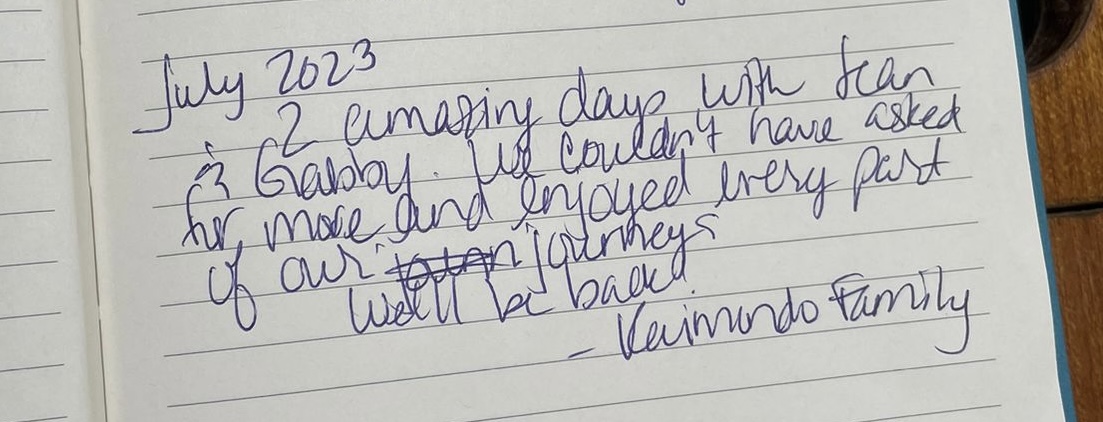 July 2023
2 amazing days with Sean
& Gabby. We couldn't have asked
for more and enjoyed every part
of our journeys
We'll be back!
- Raimondo Family